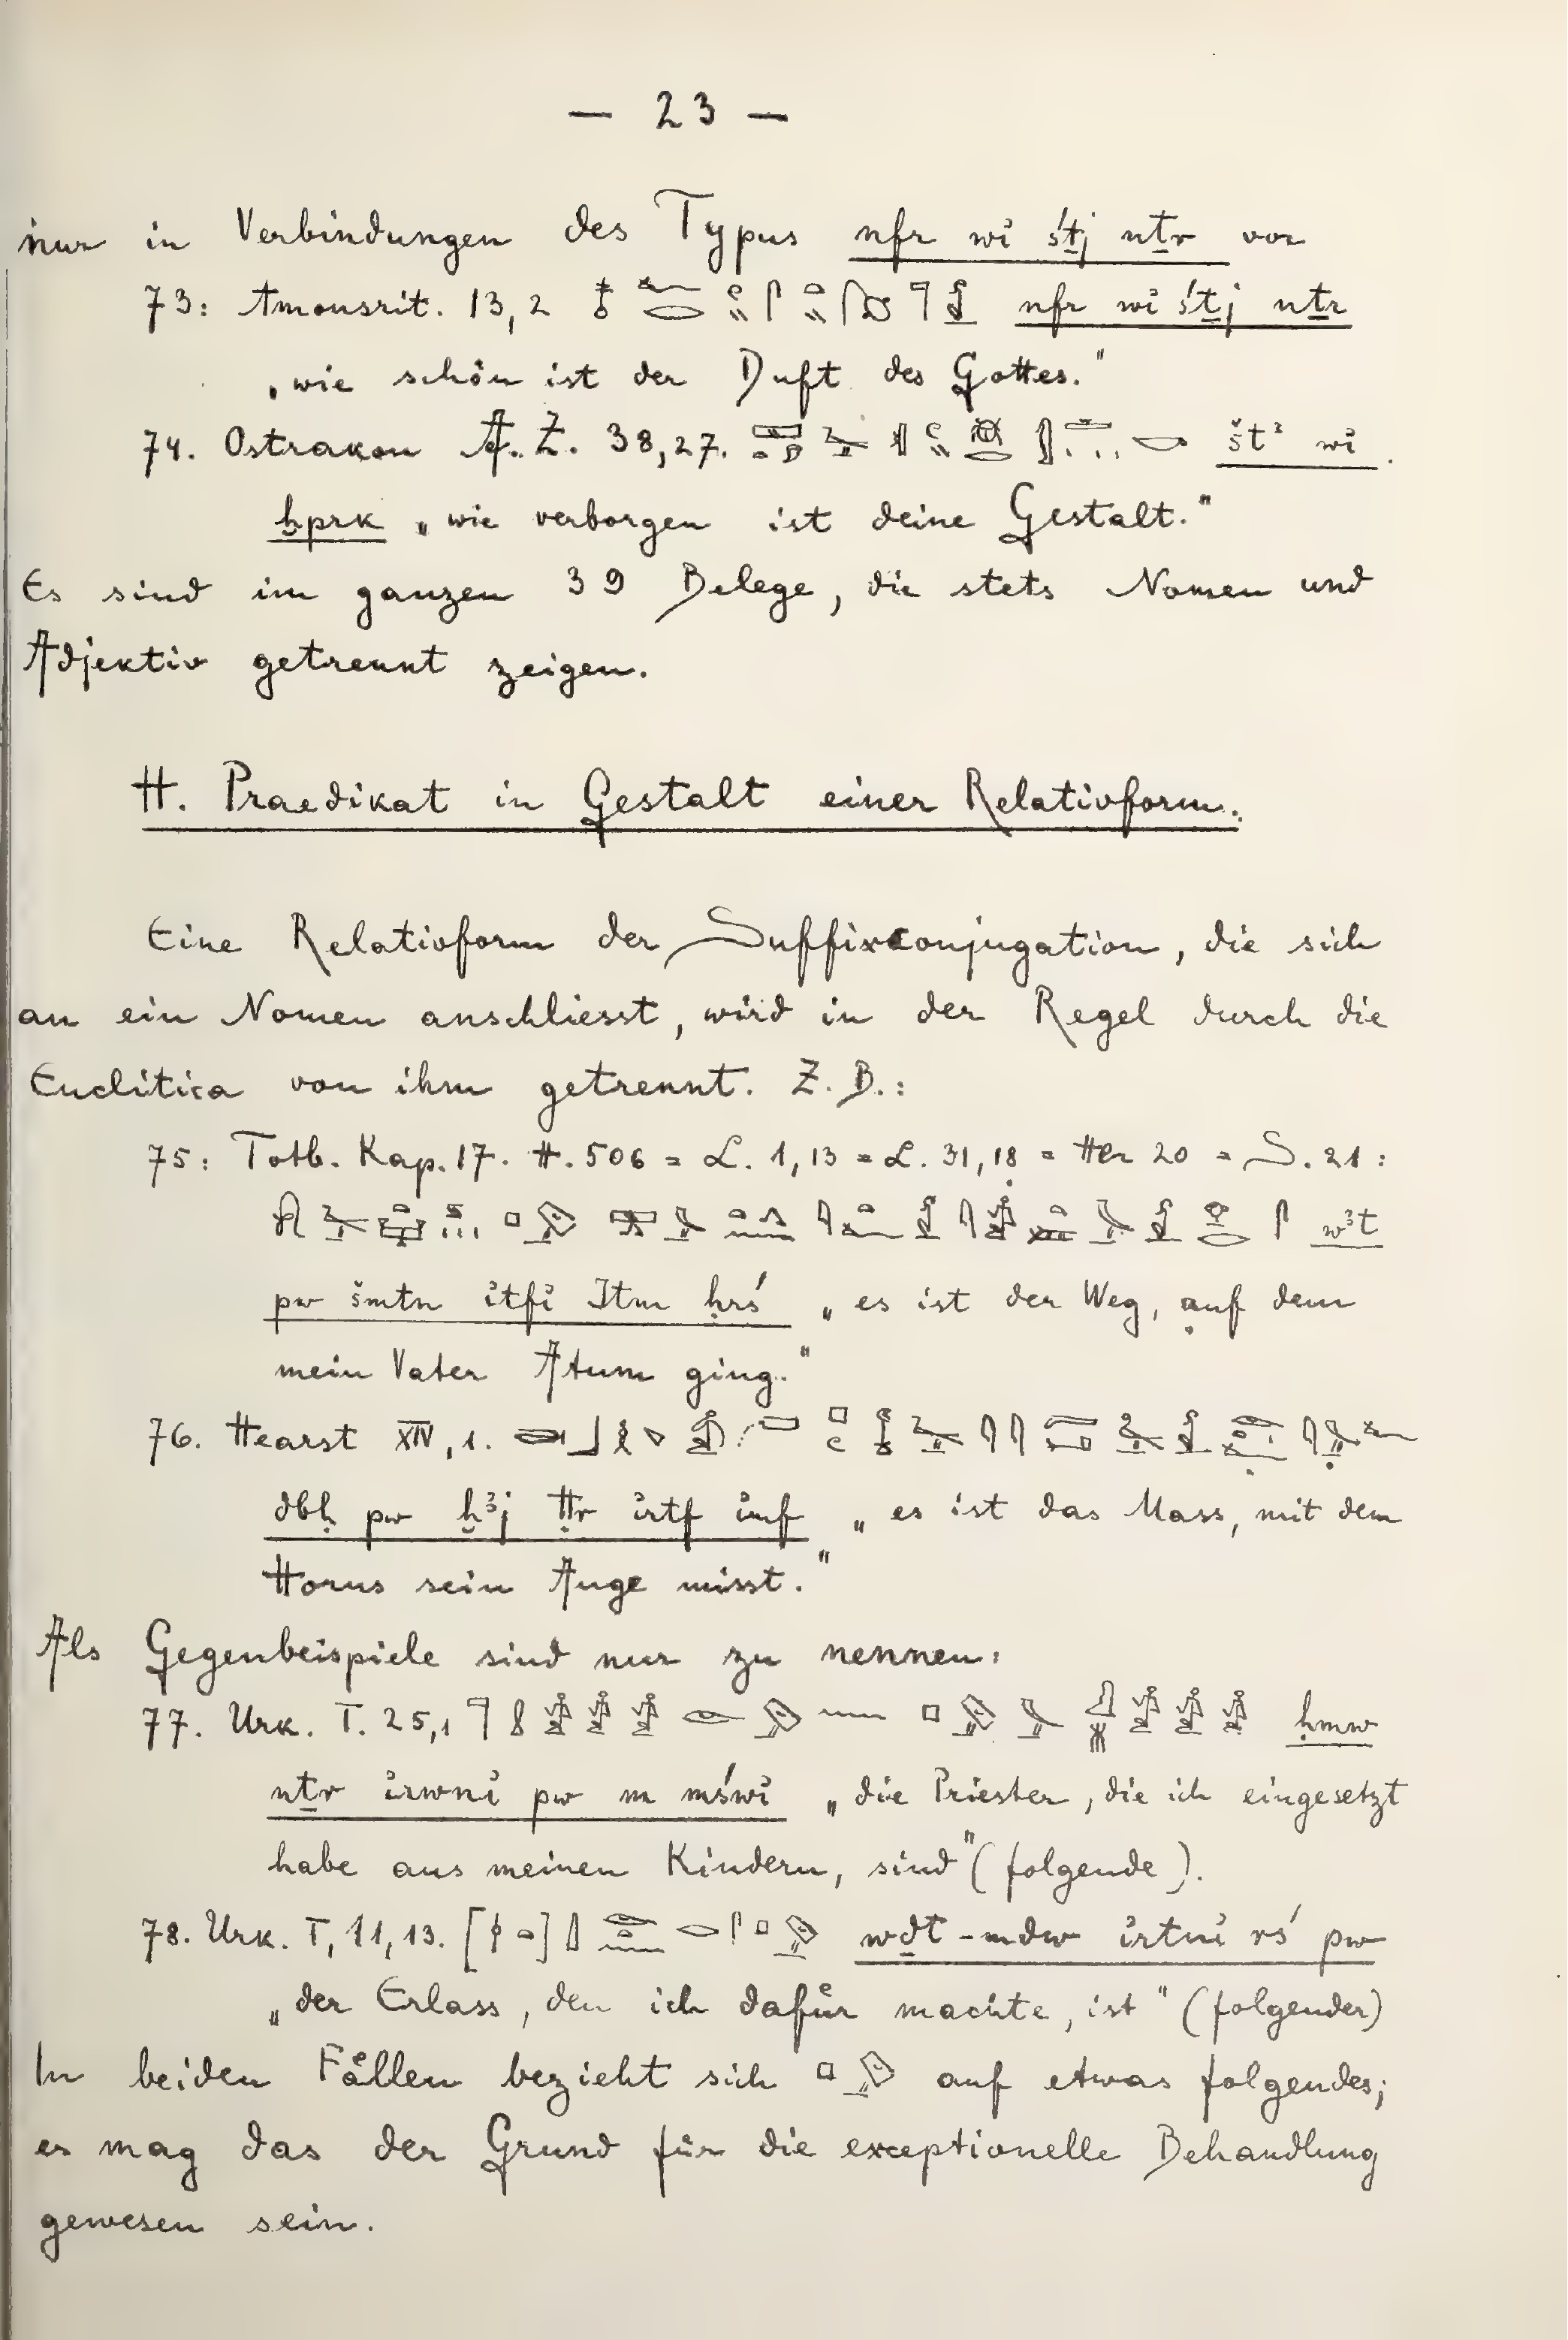 — 23 —
nur in Verbindungen des Typus nfr wi śṯj nṯr vor
73: Amonsrit. 13,2 nfr wi śṯj nṯr
„wie schön ist der Duft des Gottes."
74. Ostrakon Ä.Z. 38,27. št³ wi
ḫprk „wie verborgen ist deine Gestalt."
Es sind im ganzen 39 Belege, die stets Nomen und
Adjektiv getrennt zeigen.
H. Praedikat in Gestalt einer Relativform.
Eine Relativform der Suffixconjugation, die sich
an ein Nomen anschliesst, wird in der Regel durch die
Enclitica von ihm getrennt. Z.B.:
75: Totb. Kap. 17. H. 506 = L. 1,13 = L. 31,18 = Her 20 = S. 21:
w³t
pw šmtn itfi Itm ḥrś „es ist der Weg, auf dem
mein Vater Atum ging."
76. Hearst XIV,1.
dbḥ pw ḫ³j Ḥr irtf imf „es ist das Mass, mit dem
Horus sein Auge misst."
Als Gegenbeispiele sind nur zu nennen:
77. Urk. I. 25,1 ḥmw
nṯr irwni pw m mświ „die Priester, die ich eingesetzt
habe aus meinen Kindern, sind" (folgende).
78. Urk. I, 11,13. [ ] wḏt-mdw irtni rś pw
„der Erlass, den ich dafür machte, ist" (folgender)
In beiden Fällen bezieht sich auf etwas folgendes;
es mag das der Grund für die exceptionelle Behandlung
gewesen sein.